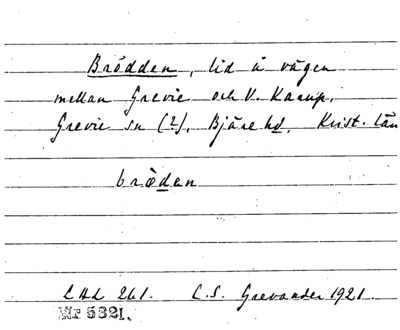 Brödden, lid å vägen
mellan Grevie och V. Karup,
Grevie sn (?), Bjäre hd, Krist. län
brödan
LHL 261. C.S. Grevander 1921.
Nr 5321.